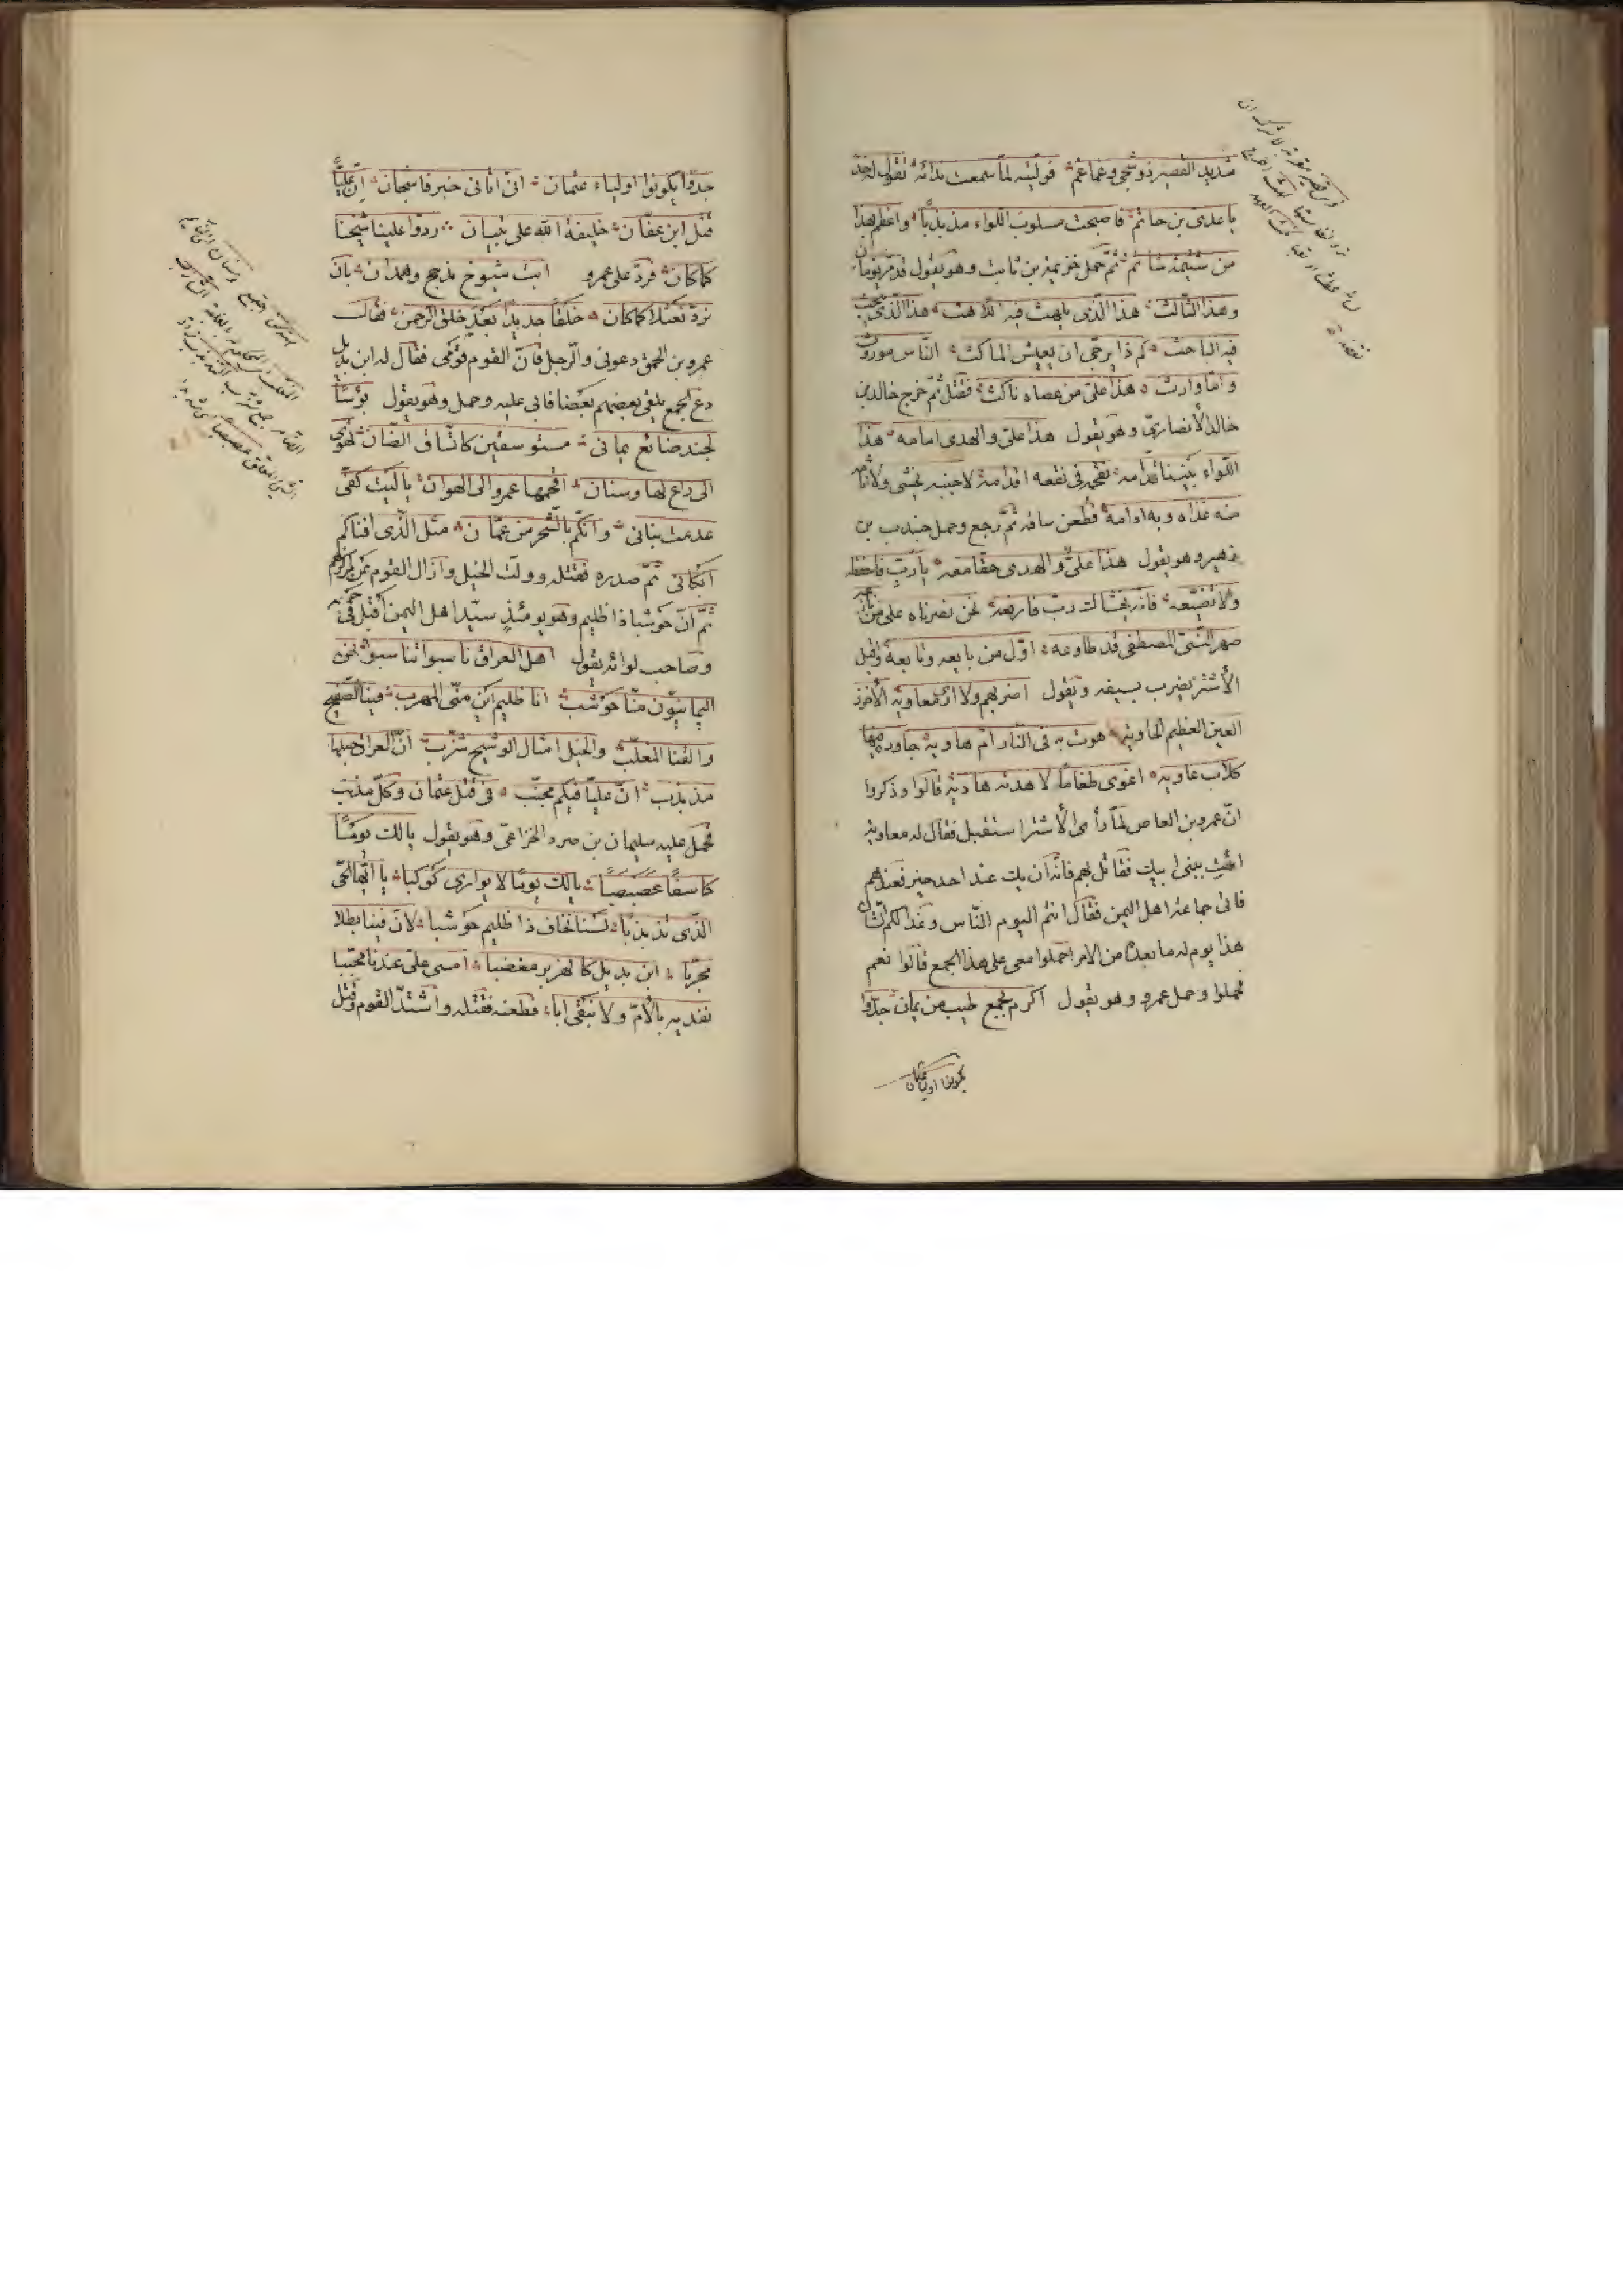 شديد القصير ذو شجى وغماغم فوليته لما سمعت نداءه تقول له خذ
يا عدى بن حاتم فاصبحت مسلوب اللواء مذبذبا واعظم بهذا
من شتيمة شاتم ثم حمل خزيمة بن ثابت وهو يقول قد مر يومان
وهذا الثالث هذا الذى يلهث فيه اللاهث هذا الذى يبحث
فيه الباحث كم ذا يرجى ان يعيش الماكث الناس موروث
واما وارث هذا على من عصاه ناكث فقتل ثم خرج خالد بن
خالد الأنصارى وهو يقول هذا على والهدى امامه هذا
اللواء نبينا قدامه يقحمه فى نقعه اقدامه لا جبنه نخشى ولا اثامه
منه غذاه وبه ادامه فطعن ساعة ثم رجع وحمل جندب بن
زهير وهو يقول هذا على والهدى حقا معه يا رب فاحفظه
ولا تضيعه فانه يخشاك رب فارفعه نحن نصرناه على من نازعه
صهر النبى المصطفى قد طاوعه اول من بايعه وتابعه واقبل
الأشتر يضرب بسيفه ويقول اضربهم ولا ارى معاوية الأخزر
العين العظيم الحاوية هوت به فى النار ام هاوية جاوره فيها
كلاب عاوية اغوى طغاما لا هدته هادية قالوا وذكروا
ان عمرو بن العاص لما رأى الأشتر استقبل فقال له معاوية
ائت ببنى ابيك فقاتل بهم فانه ان يك عند احد خير فعندهم
فاتى جماعة اهل اليمن فقال انتم اليوم الناس وغدا لكم الشأن
هذا يوم له ما بعده من الامر احملوا معى على هذا الجمع قالوا نعم
فحملوا وحمل عمرو وهو يقول اكرم بجمع طيب من يمان جدوا
يكونوا اولياء عثمان
جدوا يكونوا اولياء عثمان انى اتانى خبر فاشجان ان عليا
قتل ابن عفان خليفة الله على تبيان ردوا علينا شيخنا
كما كان فرد على عمرو ابت شيوخ مذحج وهمدان بان
نرد نعثلا كما كان خلقا جديدا بعد خلق الرحمن فقال
عمرو بن الحمق دعونى والرجل فان القوم قومى فقال له ابن بديل
دع الجمع يلقى بعضهم بعضا فابى عليه وحمل وهو يقول بؤسا
لجند ضائع يمانى مستوسقين كاتساق الضان تهوى
الى داع لها وسنان اقحمها عمرو الى الهوان يا ليت كفى
عدمت بنانى وانكم بالشحر من عمان مثل الذى افناكم
ابكانى ثم صدره فقتله وولت الخيل وازال القوم عن مركزهم
ثم ان حوشبا ذا ظليم وهو يومئذ سيد اهل اليمن اقبل فى جمعه
وصاحب لوائه يقول اهل العراق ناسبوا انتسبوا نحن
اليمانيون منا حوشب انا ظليم اين منى المهرب فينا الصفيح
والقنا المعلب والخيل امثال الوشيج شزب ان العراق حبلها
مذبذب ان عليا فيكم محبب فى قتل عثمان وكل مذنب
فحمل عليه سليمان بن صرد الخزاعى وهو يقول يا لك يوما
كاسفا عصبصبا يا لك يوما لا يوارى كوكبا يا ايها الحى
الذى تذبذبا لسنا نخاف ذا ظليم حوشبا لان فينا بطلا
مجربا ابن بديل كالهزبر مغضبا امسى على عندنا محببا
نفديه بالأم ولا نبقى ابا فطعنه فقتله واشتد القوم وقتل